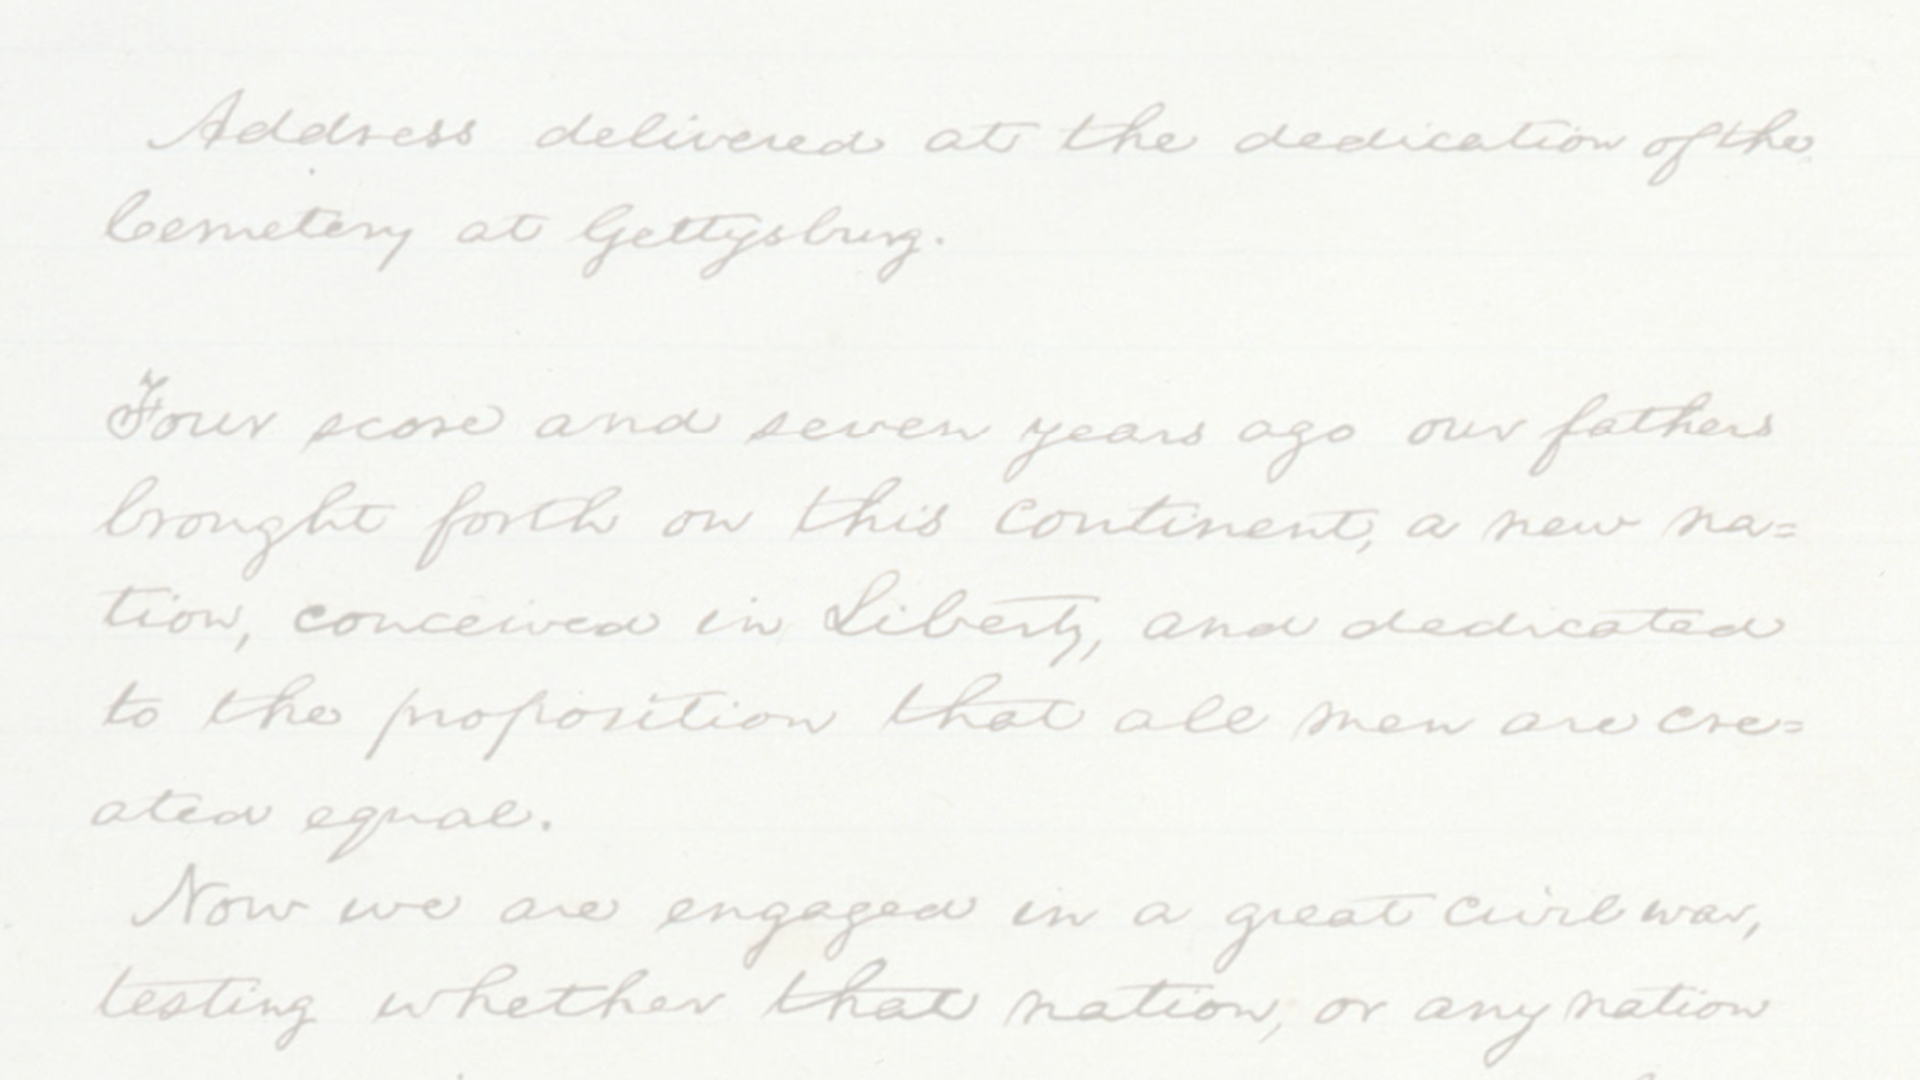 Address delivered at the dedication of the
Cemetery at Gettysburg.
Four score and seven years ago our fathers
brought forth on this continent, a new na=
tion, conceived in Liberty, and dedicated
to the proposition that all men are cre=
ated equal.
Now we are engaged in a great civil war,
testing whether that nation, or any nation